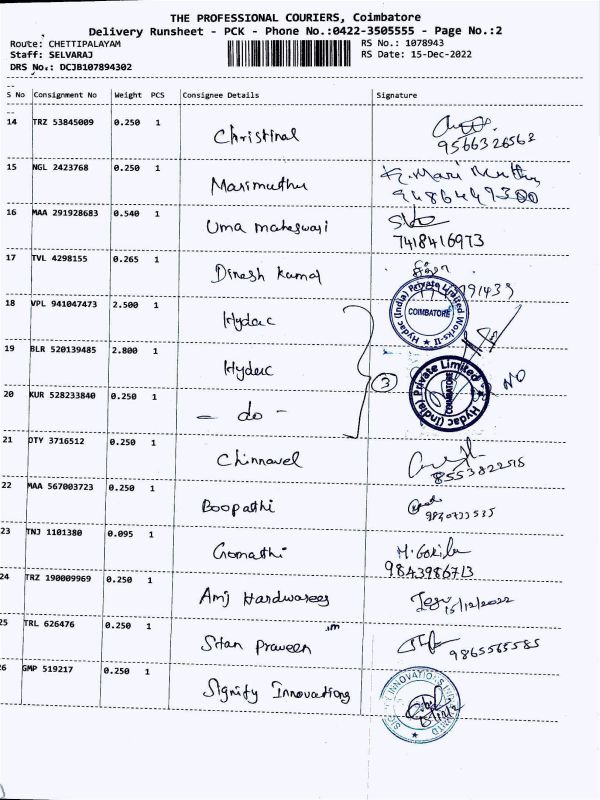 THE PROFESSIONAL COURIERS, Coimbatore
Delivery Runsheet - PCK - Phone No.:0422-3505555 - Page No.:2
Route: CHETTIPALAYAM RS No.: 1078943
Staff: SELVARAJ RS Date: 15-Dec-2022
DRS No.: DCJB107894302
S No Consignment No Weight PCS Consignee Details Signature
14 TRZ 53845009 0.250 1 Christinal
9566326562
15 NGL 2423768 0.250 1 Marimuthu K. Mari Muthu
9486449300
16 MAA 291928683 0.540 1 Uma maheswari
7418416973
17 TVL 4298155 0.265 1 Dinesh kumar
18 VPL 941047473 2.500 1 Hydac
Hydac (India) Private Limited Works-II
COIMBATORE
19 BLR 520139485 2.800 1 Hydac
3
Hydac (India) Private Limited
COIMBATORE
NO
20 KUR 528233840 0.250 1 - do -
21 OTY 3716512 0.250 1 Chinnavel
8553822515
22 MAA 567003723 0.250 1 Boopathi
23 TNJ 1101380 0.095 1 Gomathi M. Gokila
9843986713
24 TRZ 190009969 0.250 1 Amj Hardwares
15/12/2022
25 TRL 626476 0.250 1 Sitan Praveen
9865565585
26 GMP 519217 0.250 1 Signify Innovations